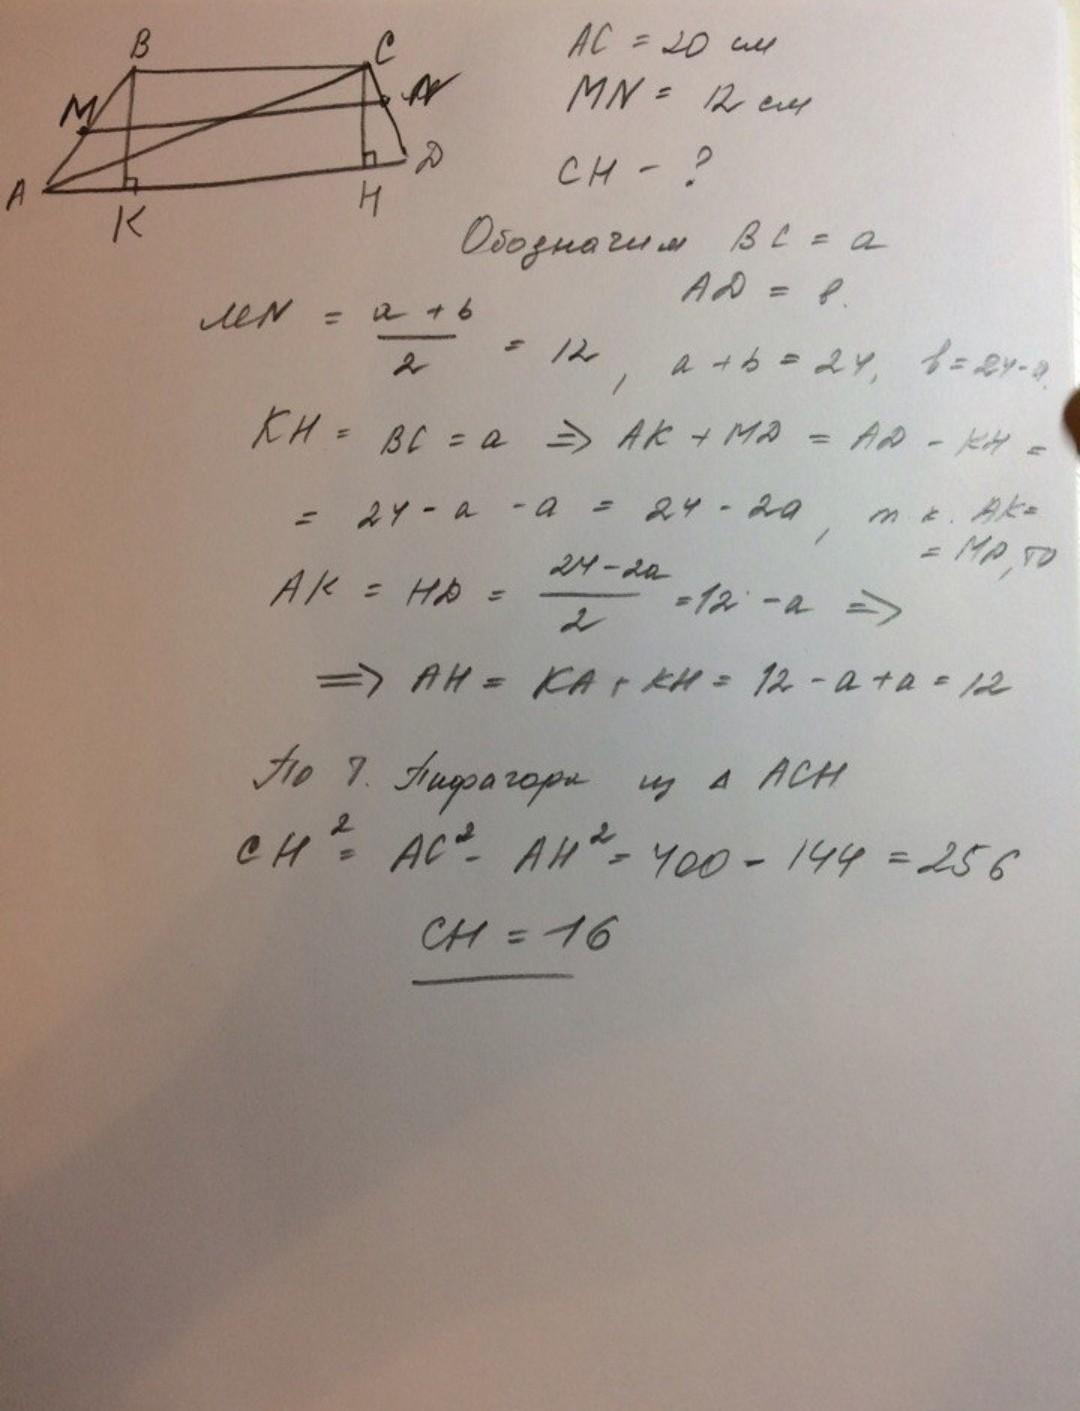 B
C
M
N
A
K
H
D
AC = 20 см
MN = 12 см
CH - ?
Обозначим BC = a
AD = в.
MN = a + b / 2 = 12, a + b = 24, b = 24-a.
KH = BC = a => AK + MD = AD - KH =
= 24 - a - a = 24 - 2a, т.к. AK=
= MD, то
AK = HD = 24-2a / 2 = 12 - a =>
=> AH = KA + KH = 12 - a + a = 12
По т. Пифагора из △ ACH
CH² = AC² - AH² = 400 - 144 = 256
CH = 16